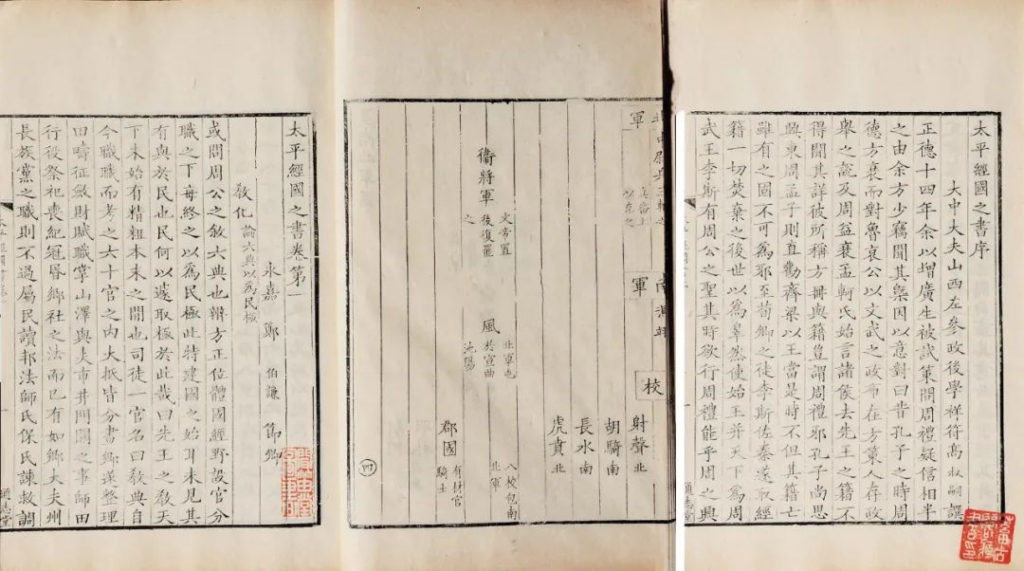 太平經國之書序
大中大夫山西左參政後學祥符高叔嗣譔
正德十四年余以增廣生被試策問周禮疑信相半
之由余方少竊聞其槩因以意對曰昔孔子之時周
德方衰而對魯哀公以文武之政布在方策人存政
舉之說及周益衰孟軻氏始言諸侯去先王之籍不
得聞其詳彼所稱方冊與籍豈謂周禮邪孔子尚思
興東周孟子則直勸齊梁以王當是時不但其籍亡
雖有之固不可為邪至荀卿之徒李斯佐秦遂取經
籍一切焚棄之後世以為辠然使始王并天下為周
武王李斯有周公之聖其時欲行周禮能乎周之興
通志堂
軍
軍
校
射聲北
胡騎南
長水南
虎賁北
衛將軍文帝置後復置之
北軍也
風於宣曲池陽
八校包南北軍
郡國有材官騎士
四
太平經國之書卷第一
永嘉鄭伯謙節卿
教化論六典以為民極
或問周公之敘六典也辨方正位體國經野設官分
職之下每終之以為民極此特建國之始耳未見其
有與於民也民何以遽取極於此哉曰先王之教天
下未始有精粗本末之間也司徒一官名曰教典自
今職職而考之六十官之內大抵皆分書鄉遂整理
田疇征斂財賦職掌山澤與夫市井門關之事師田
行役祭祀喪紀冠昏鄉社之法而已有如鄉大夫州
長族黨之職則不過屬民讀邦法師氏保氏諫救調
通志堂